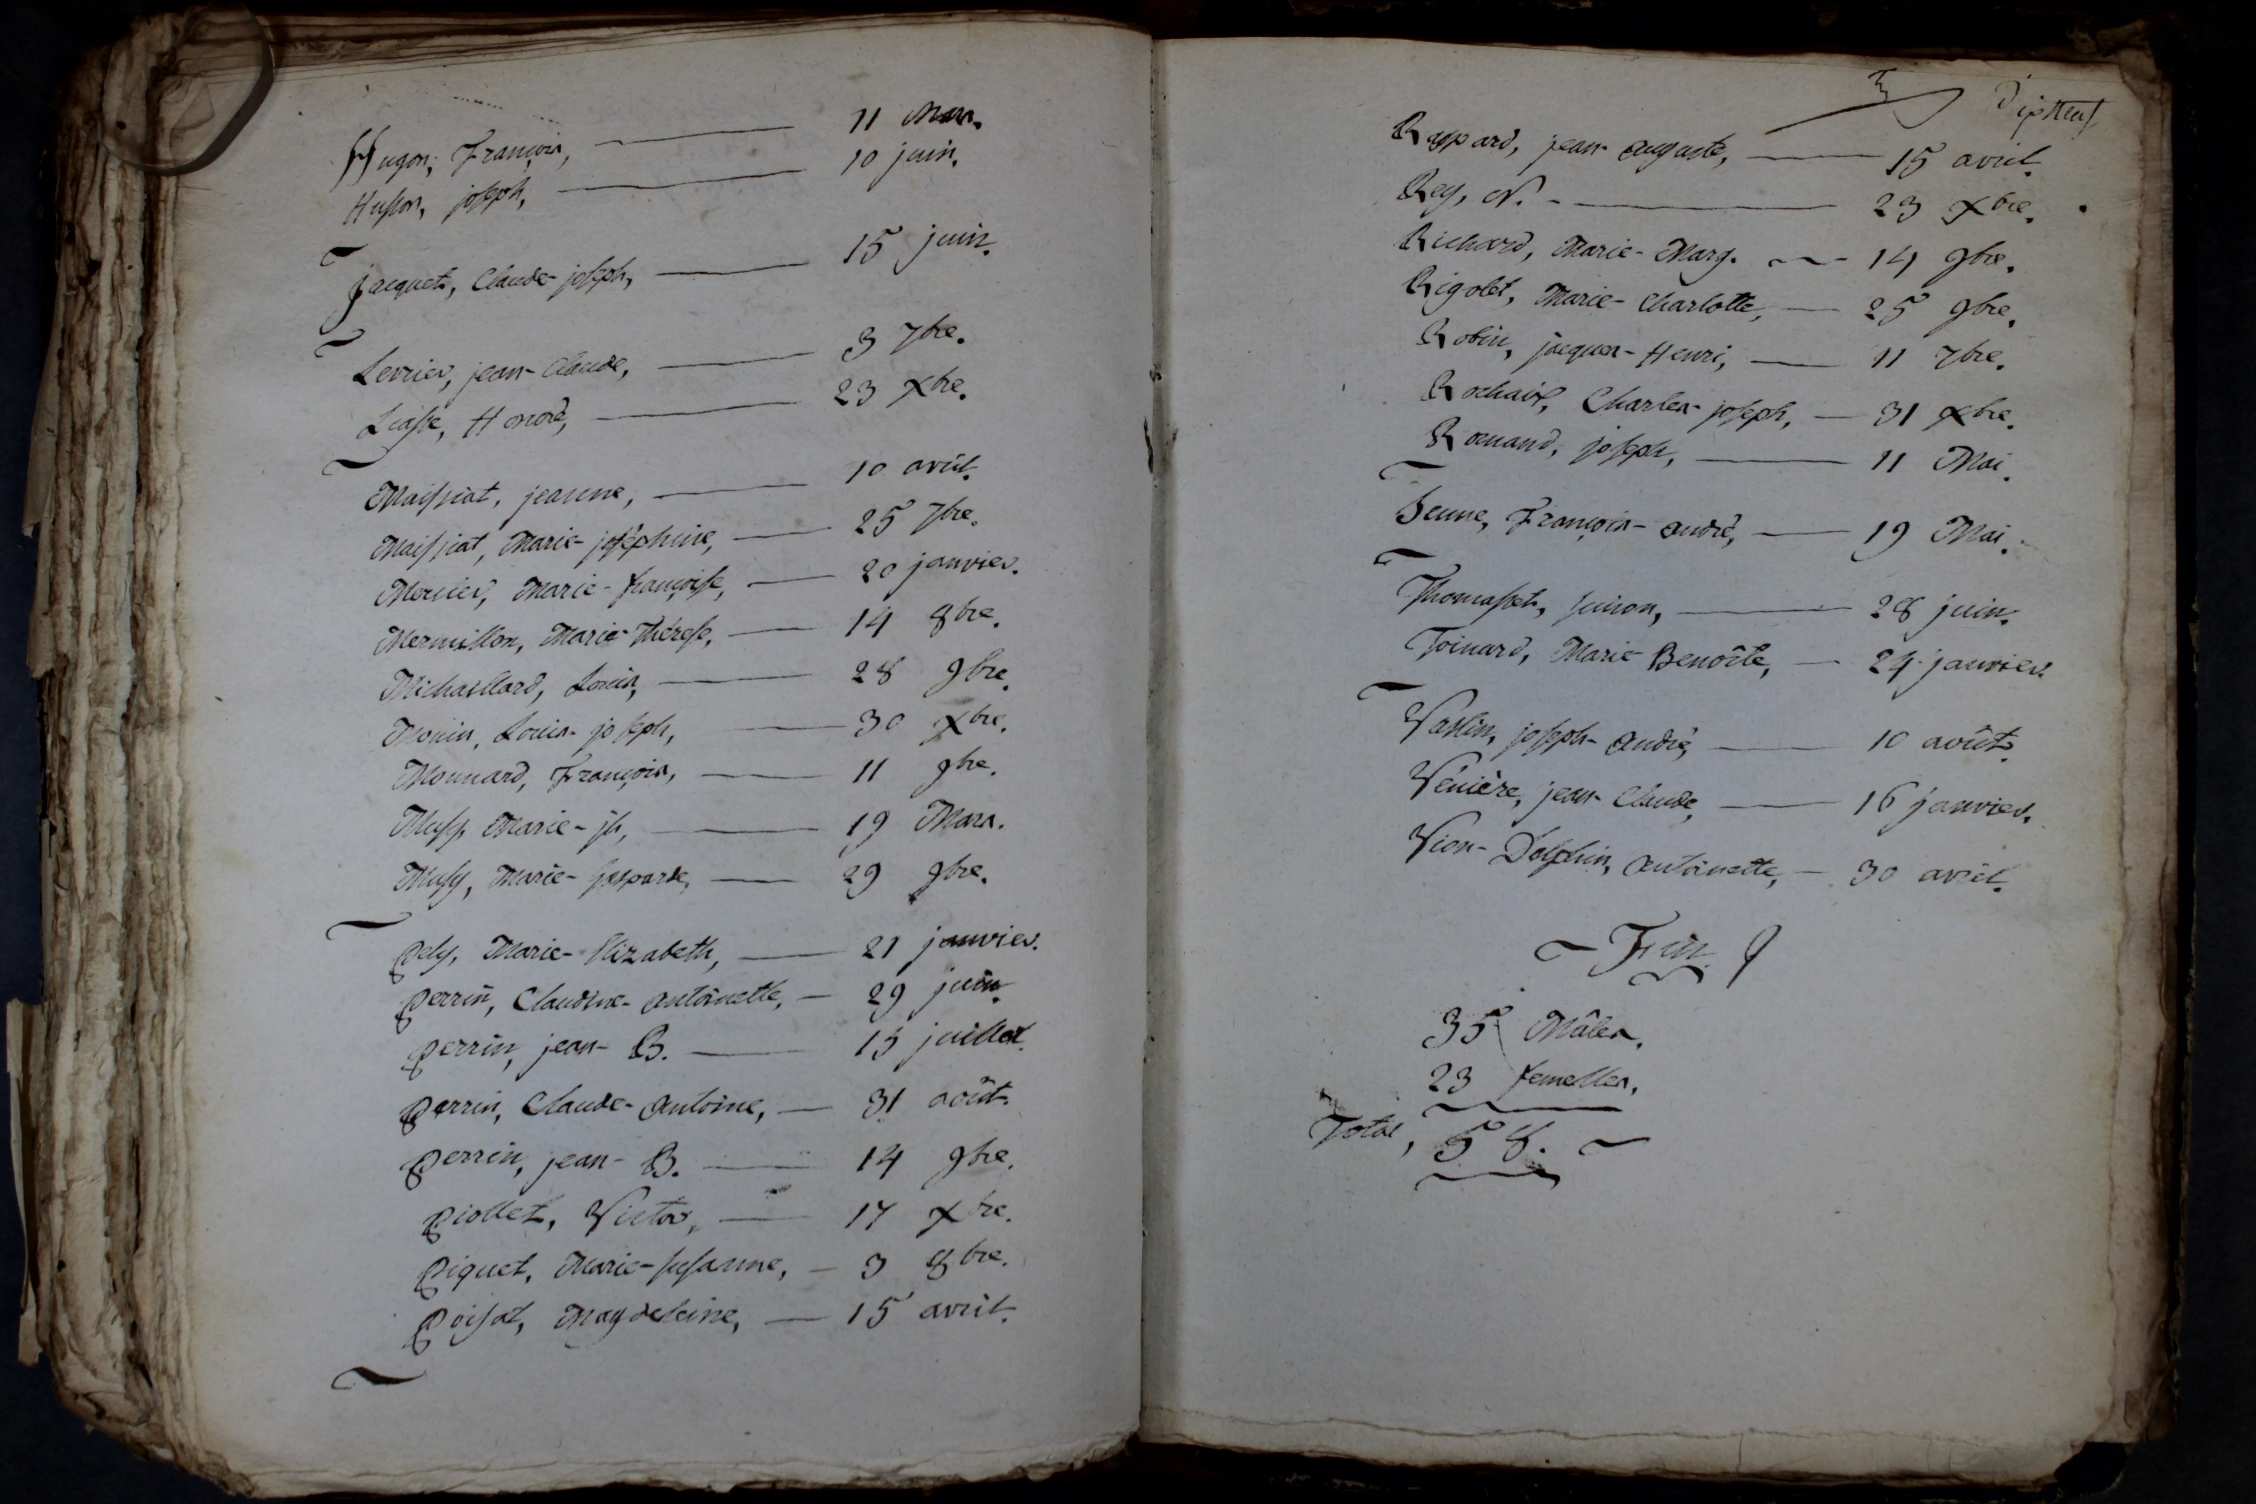 Hugon, François, 11 Mars.
Husson, joseph, 10 juin.
Jacquet, Claude-joseph, 15 juin.
Lerrier, jean-Claude, 3 7bre.
Liasse, Honoré, 23 xbre.
Maissiat, jeanne, 10 avril.
Maissiat, Marie-joséphine, 25 7bre.
Mercier, Marie-françoise, 20 janvier.
Mermillon, Marie-Thérese, 14 8bre.
Michaillard, Louis, 28 9bre.
Monin, Louis-joseph, 30 xbre.
Monnard, François, 11 9bre.
Mussy, Marie-jh, 19 Mars.
Mussy, Marie-gasparde, 29 9bre.
Pely, Marie-Elizabeth, 21 janvier.
Perrin, Claudine-antoinette, 29 juin.
Perrin, jean-B. 15 juillet.
Perrin, Claude-Antoine, 31 août.
Perrin, jean-B. 14 9bre.
Piollet, Victor, 17 xbre.
Piquet, Marie-susanne, 3 8bre.
Poisat, Magdeleine, 15 avril.
Dixneuf
Raspard, jean-auguste, 15 avril.
Rey, N. 23 xbre.
Richard, Marie-Marg. 14 9bre.
Rigolet, Marie-Charlotte, 25 9bre.
Robin, jacques-Henri, 11 7bre.
Rochaix, Charles-joseph, 31 xbre.
Romand, joseph, 11 Mai.
Senne, François-andré, 19 Mai.
Thomasset, simon, 28 juin.
Toinard, Marie Benoîte, 24 janvier.
Vaslin, joseph-andré, 10 août.
Vénière, jean-Claude, 16 janvier.
Vion-Dolphin, antoinette, 30 avril.
Fin.
35 Mâles.
23 femelles.
Total, 58.